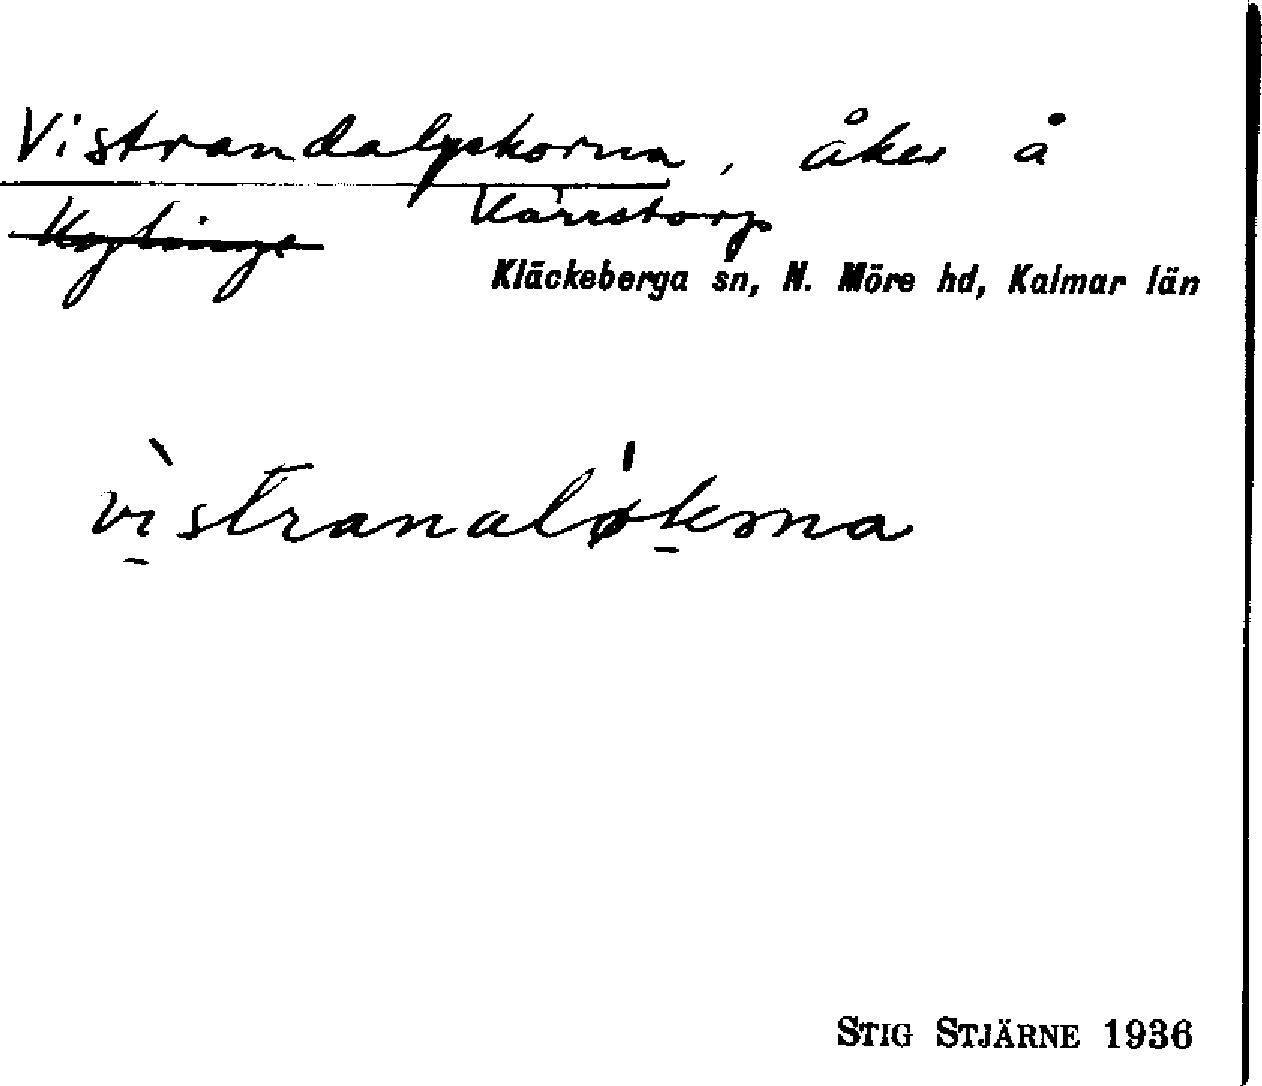 Vistrandalyckorna, åker å
Kärrstorp
Kläckeberga sn, N. Möre hd, Kalmar län
STIG STJÄRNE 1936